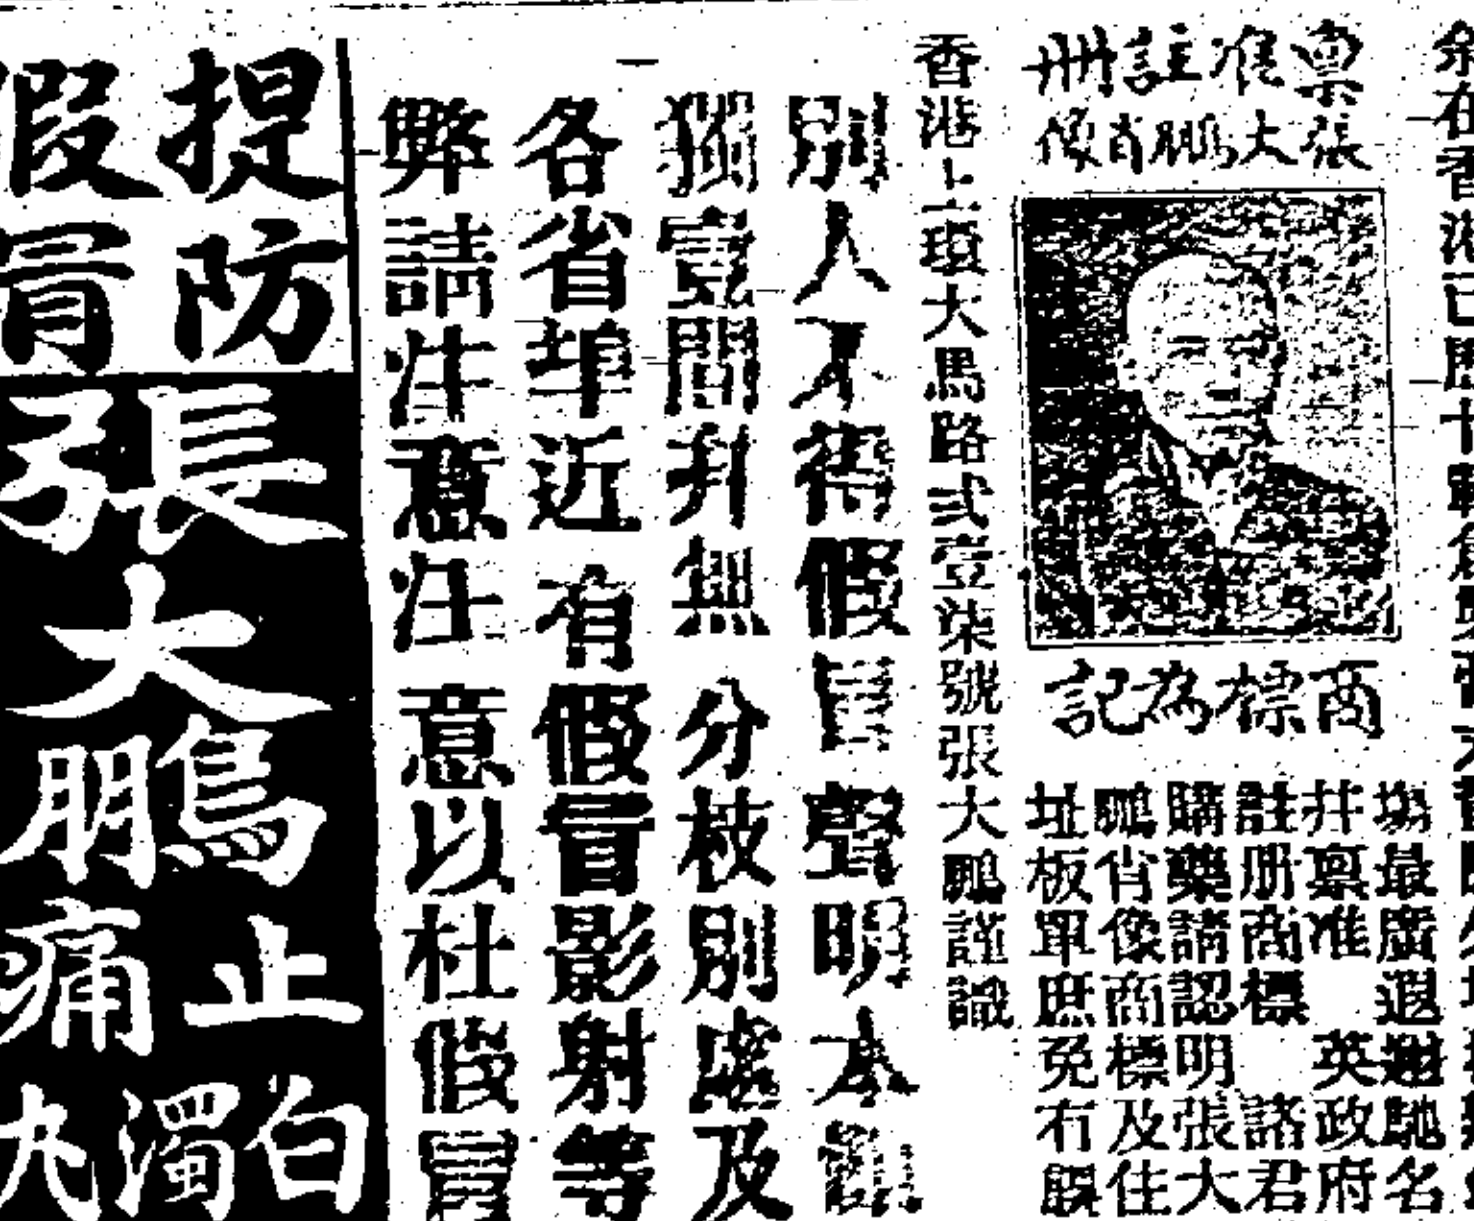 余在香港已歷十
稟准註册
張大鵬肖像
商標為記
塲最廣遐邇馳名
并稟准 英政府
註册商標 諸君
購藥請認明張大
鵬肖像商標及住
址板單庶免有誤
香港上環大馬路弍壹柒號張大鵬謹識
別人不得假冒聲明本
獨壹間并無分枝別處及
各省埠近有假冒影射等
弊請注意注意以杜假冒
提防
假冒
張大鵬
止痛
白濁丸